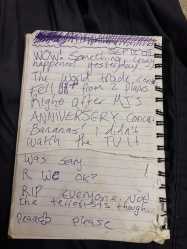 Sept 12 01
WOW. Something crazy
happened yesterday.
The world trade center
Fell from 2 planes
Right after MJ's
ANNIVERSERY Concert
Bananas! I didn't
watch the TV!!
Was sary!
R We OK?
RIP everyone. Not
the terrorists though..
Peace please